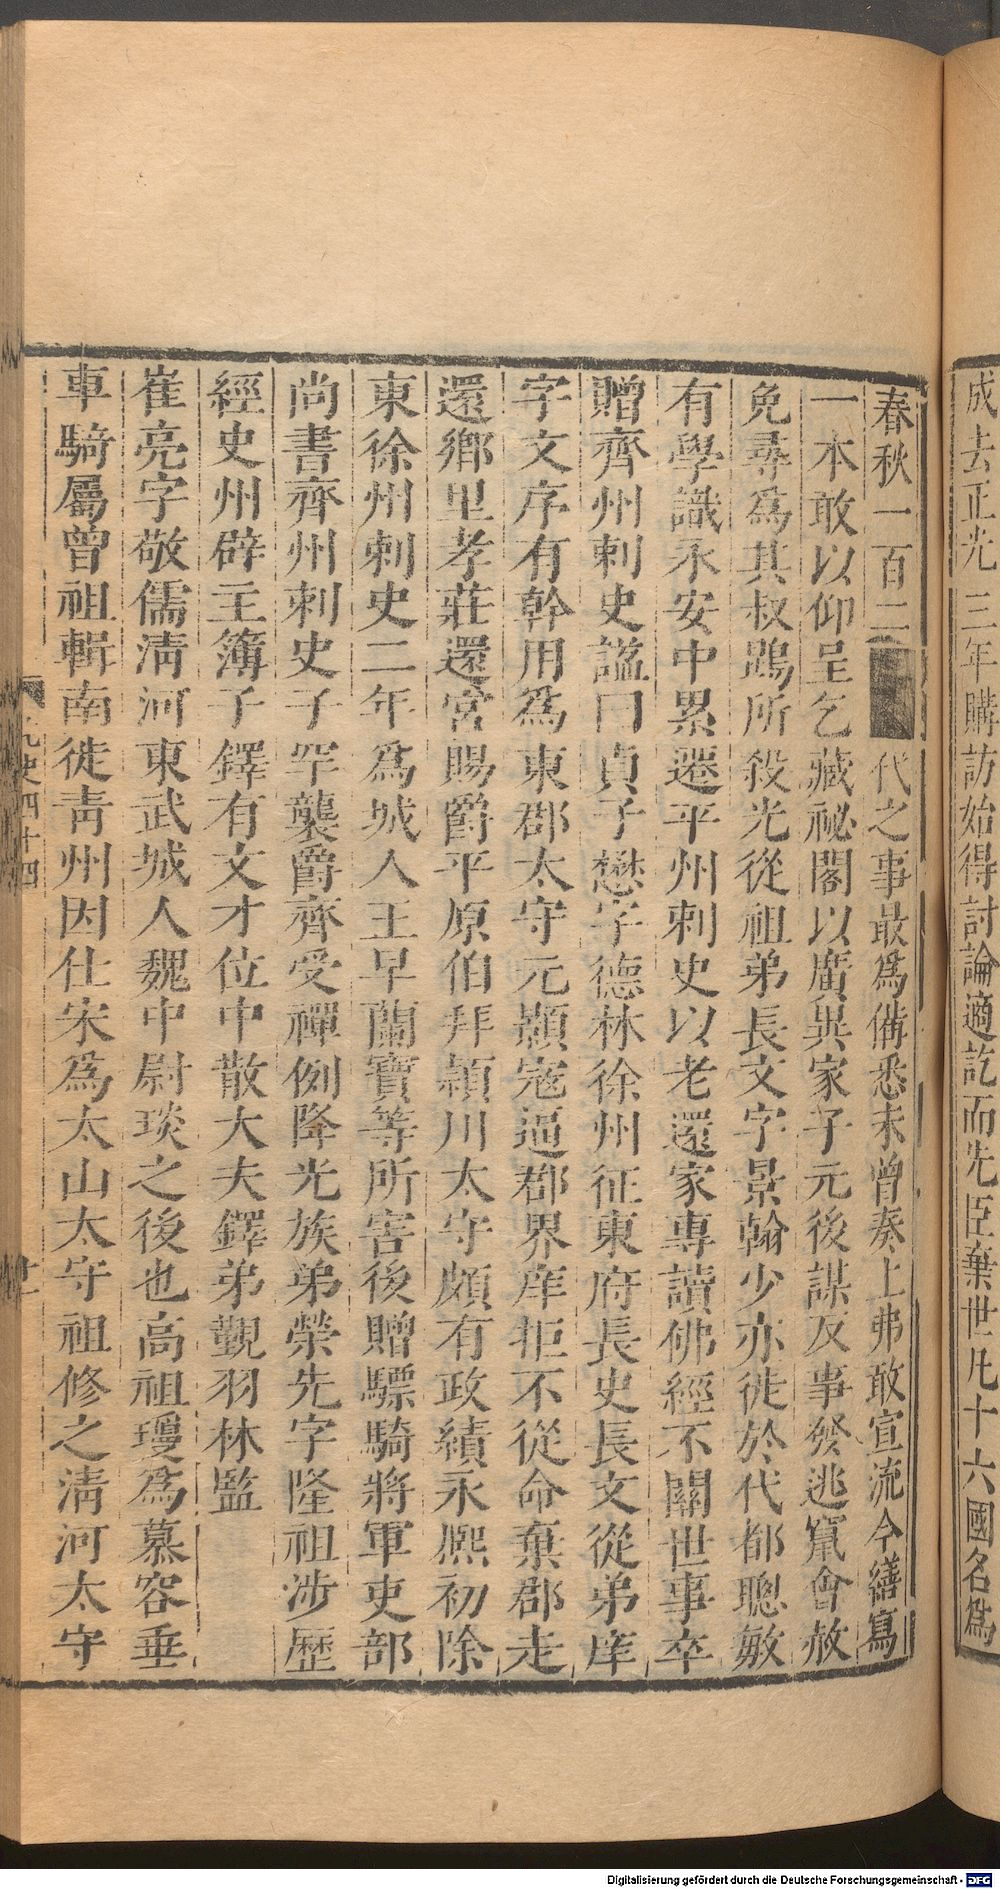 成去正光三年購訪始得討論適訖而先臣棄世凡十六國名爲
春秋一百二代之事最爲備悉未曾奏上弗敢宣流今繕寫
一本敢以仰呈乞藏祕閣以廣異家子元後謀反事發逃竄會赦
免尋爲其叔鴟所殺光從祖弟長文字景翰少亦徙於代都聰敏
有學識永安中累遷平州刺史以老還家專讀佛經不關世事卒
贈齊州刺史謚曰貞子懋字德林徐州征東府長史長文從弟庠
字文序有幹用爲東郡太守元顥寇逼郡界庠拒不從命棄郡走
還鄉里孝莊還宮賜爵平原伯拜潁川太守頗有政績永熙初除
東徐州刺史二年爲城人王早蘭寶等所害後贈驃騎將軍吏部
尚書齊州刺史子罕襲爵齊受禪例降光族弟榮先字隆祖涉歷
經史州辟主簿子鐸有文才位中散大夫鐸弟覲羽林監
崔亮字敬儒淸河東武城人魏中尉琰之後也高祖瓊爲慕容垂
車騎屬曾祖輯南徙靑州因仕宋爲太山太守祖修之淸河太守
史四十四
Digitalisierung gefördert durch die Deutsche Forschungsgemeinschaft - DFG